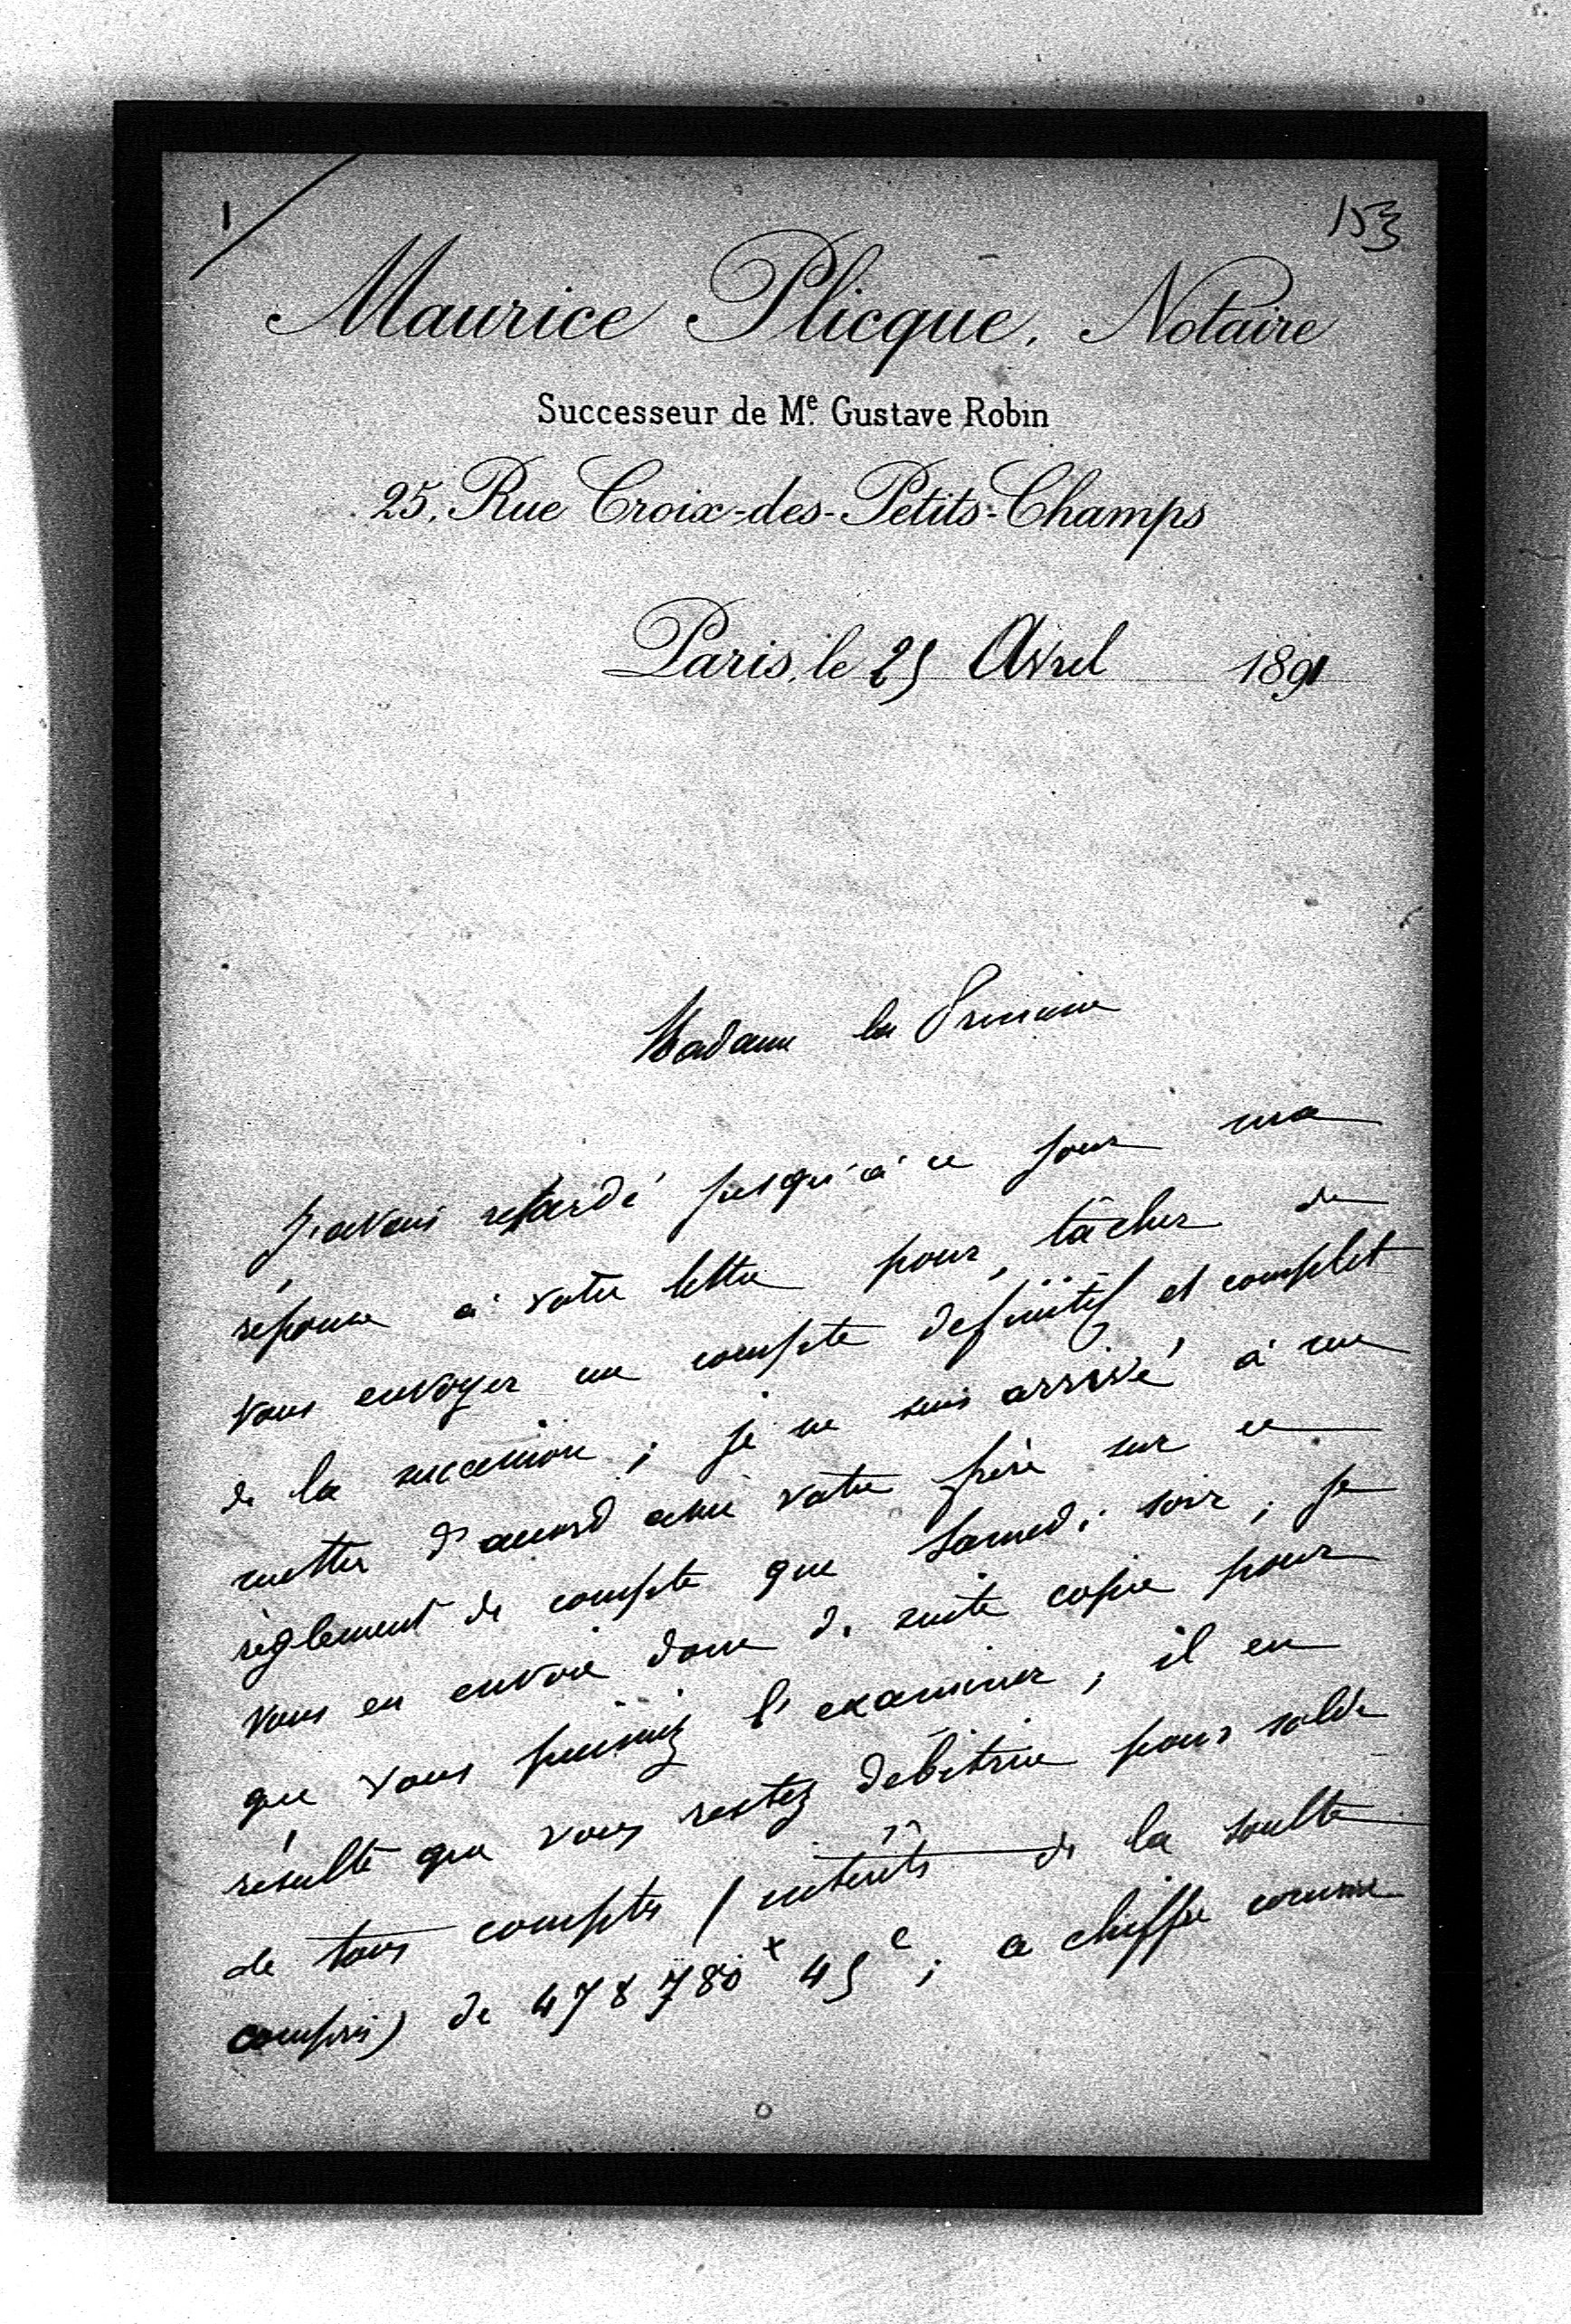 1/
153
Maurice Plicque, Notaire
Successeur de Me. Gustave Robin
25, Rue Croix-des-Petits-Champs
Paris, le 25 Avril 1891
Madame la Princesse
J'avais retardé jusqu'à ce jour ma
réponse à votre lettre pour tâcher de
vous envoyer un compte définitif et complet
de la succession ; je ne suis arrivé à me
mettre d'accord avec votre frère sur ce
règlement de compte que Samedi soir ; je
vous en envoie donc de suite copie pour
que vous puissiez l'examiner ; il en
résulte que vous restez débitrice pour solde
de tous comptes (intérêts de la soulte
compris) de 478 780 f 45 c ; ce chiffre comme